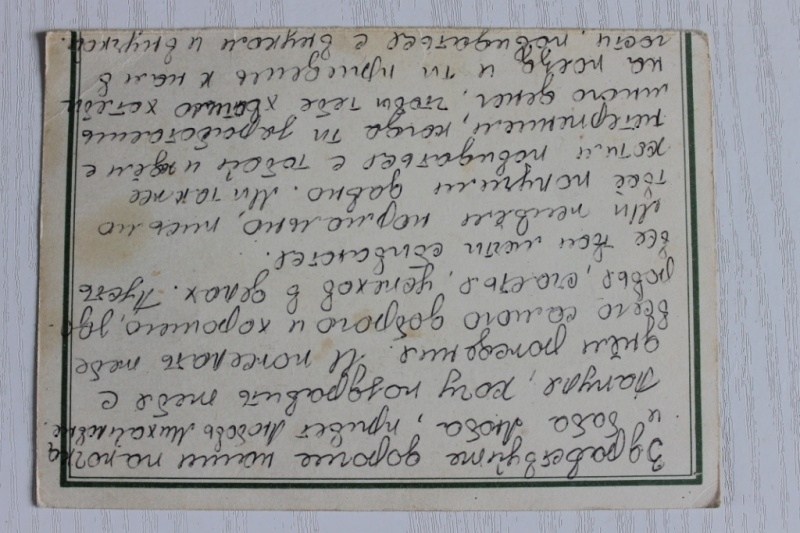 Здравствуйте дорогие наши папочка
и баба Люба, привет Любовь Михайловне.
Папуля, хочу поздравить тебя с
днём рождения. И пожелать тебе
всего самого доброго и хорошего, здо
ровья, счастья, успехов в делах. Пусть
все твои мечты сбываются.
Мы живём нормально, письмо
твоё получили давно. Мы также
хотим повидаться с тобой и ждём с
нетерпением, когда ты заработаешь
много денег, чтобы тебе хватило
на поезд и ты приедешь к нам в
гости, повидаться с внуком и внучкой.